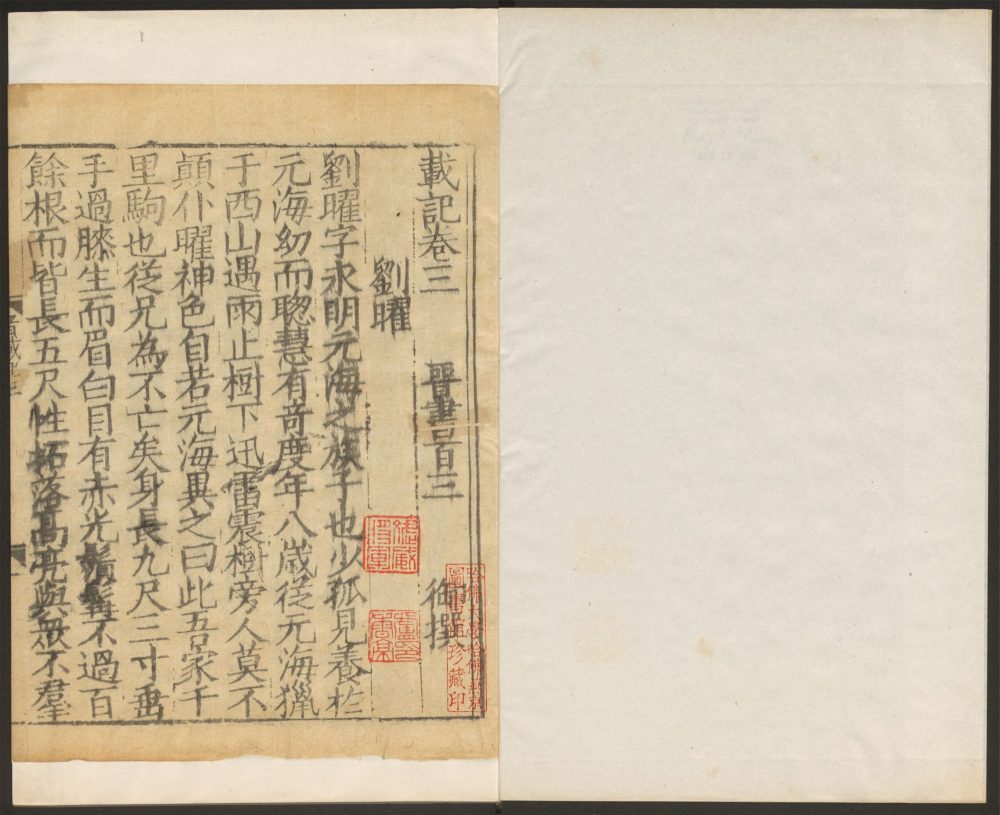 載記卷三 晉書一百三 御撰
劉曜
劉曜字永明元海之族子也少孤見養於
元海幼而聦慧有奇度年八歳從元海獵
于西山遇雨止樹下迅雷震樹旁人莫不
顛仆曜神色自若元海異之曰此吾家千
里駒也從兄為不亡矣身長九尺三寸垂
手過膝生而眉白目有赤光鬚髯不過百
餘根而皆長五尺性拓落高亮與衆不羣
哈佛大學哈佛燕京
圖書館珍藏印